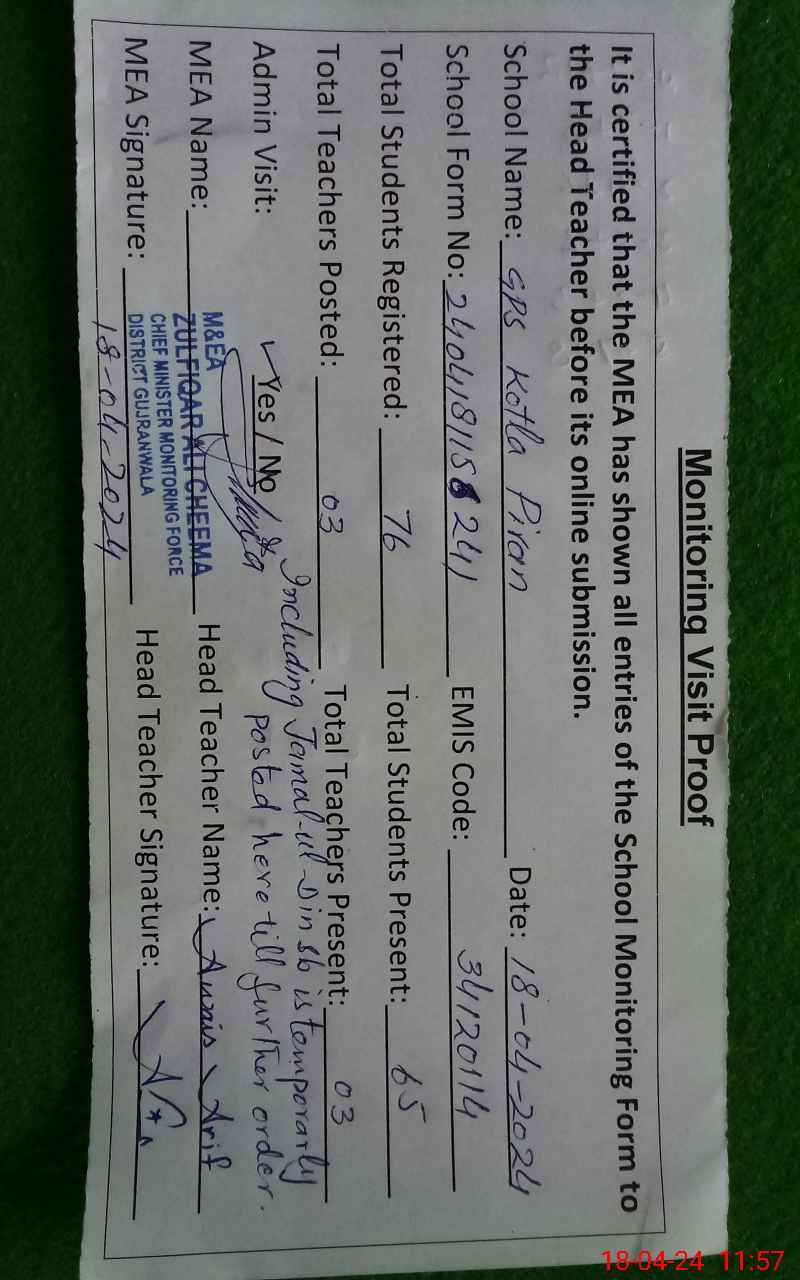 Monitoring Visit Proof
It is certified that the MEA has shown all entries of the School Monitoring Form to
the Head Teacher before its online submission.
School Name: GPS Kotla Piran Date: 18-04-2024
School Form No: 240418115 241 EMIS Code: 34120114
Total Students Registered: 76 Total Students Present: 65
Total Teachers Posted: 03 Total Teachers Present: 03
Including Jamal-ul-Din sb is temporarly
posted here till further order.
Admin Visit: Yes / No
MEA Name: Head Teacher Name: Arif
M&EA
ZULFIQAR ALI CHEEMA
CHIEF MINISTER MONITORING FORCE
DISTRICT GUJRANWALA
MEA Signature: Head Teacher Signature:
18-04-2024
18-04-24 11:57